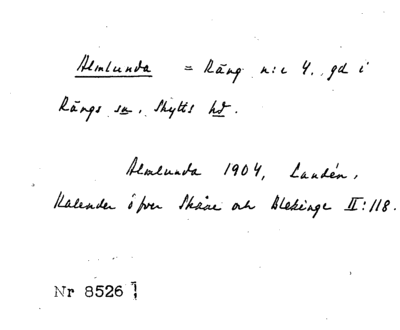 Almlunda = Räng n:o 4. gd i
Rängs sn, Skytts hd.
Almlunda 1904, Landén,
Kalender öfver Skåne och Blekinge II:118.
Nr 8526